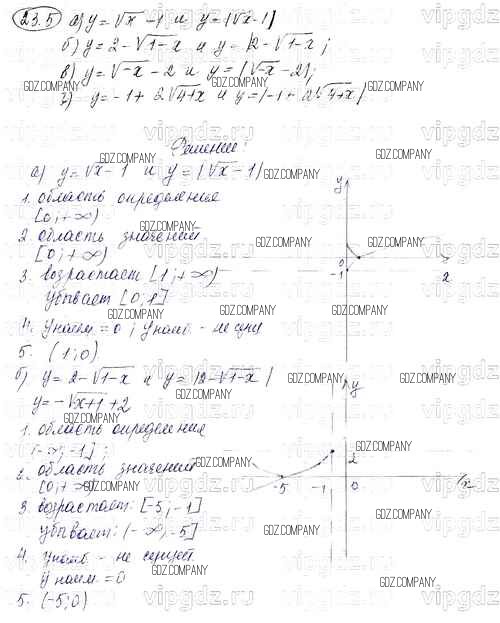 23.5 а) y = √x - 1 и y = |√x - 1|
б) y = 2 - √1-x и y = |2 - √1-x|;
в) y = √-x - 2 и y = |√-x - 2|;
г) y = -1 + 2√4+x и y = |-1 + 2√4+x|
Решение:
а) y = √x - 1 и y = |√x - 1|
1. область определения
[0; +∞)
2 область значений
[0; +∞)
3. возрастает [1; +∞)
убывает [0; 1]
4. y наим. = 0; y наиб - не сущ
5. (1; 0)
y
0
-1
2
б) y = 2 - √1-x и y = |2 - √1-x|
y = -√x+1 + 2
1. область определения
(-∞; -1];
2. область значений
[0; +∞)
3 возрастает: [-5; -1]
убывает: (-∞; -5]
4. y наиб - не сущест
y наим = 0
5. (-5; 0)
y
2
-5
-1
0
x
GDZ.COMPANY
vipgdz.ru